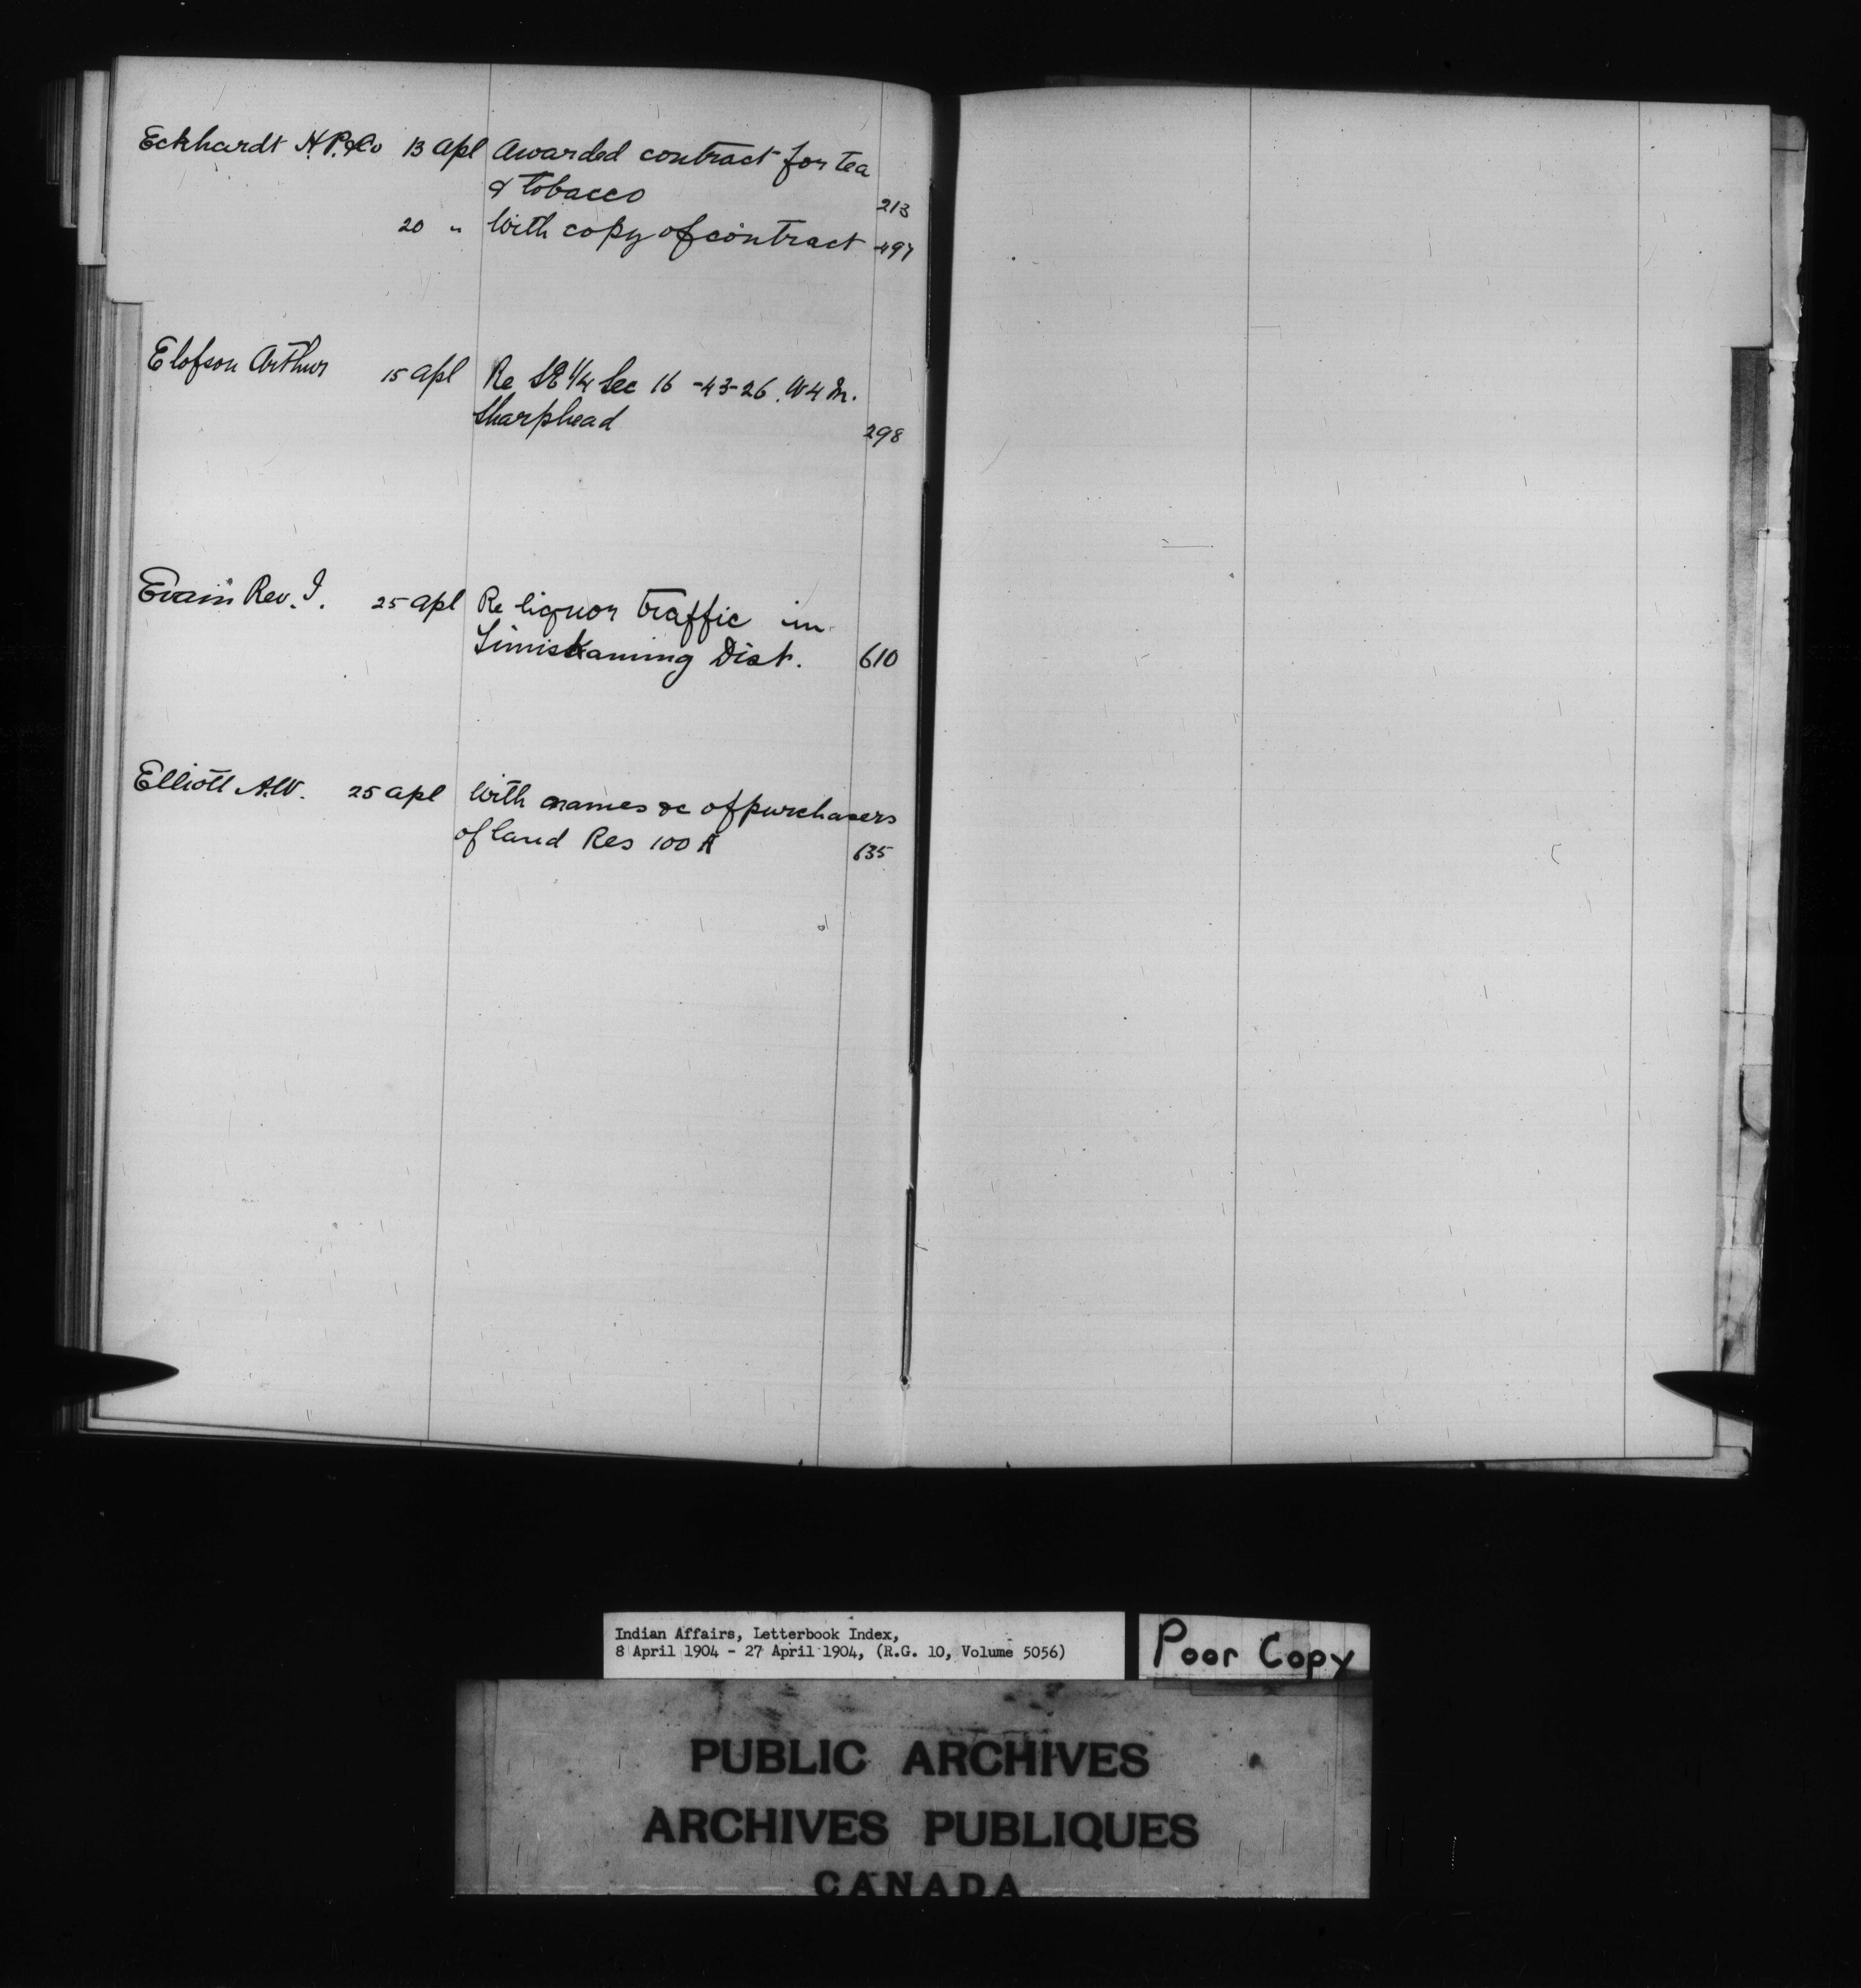 Eckhardt H.P. & Co 13 Apl Awarded contract for tea
& tobacco 213
20 " With copy of contract 497
Elofson Arthur 15 Apl Re SE 1/4 Sec 16 -43-26. W4M.
Sharphead 298
Rev. I. 25 Apl Re liquor traffic in
Timiskaming Dist. 610
Elliott A.W. 25 Apl With names &c of purchasers
of land Res 100 A 635
Indian Affairs, Letterbook Index,
8 April 1904 - 27 April 1904, (R.G. 10, Volume 5056)
Poor Copy
PUBLIC ARCHIVES
ARCHIVES PUBLIQUES
CANADA